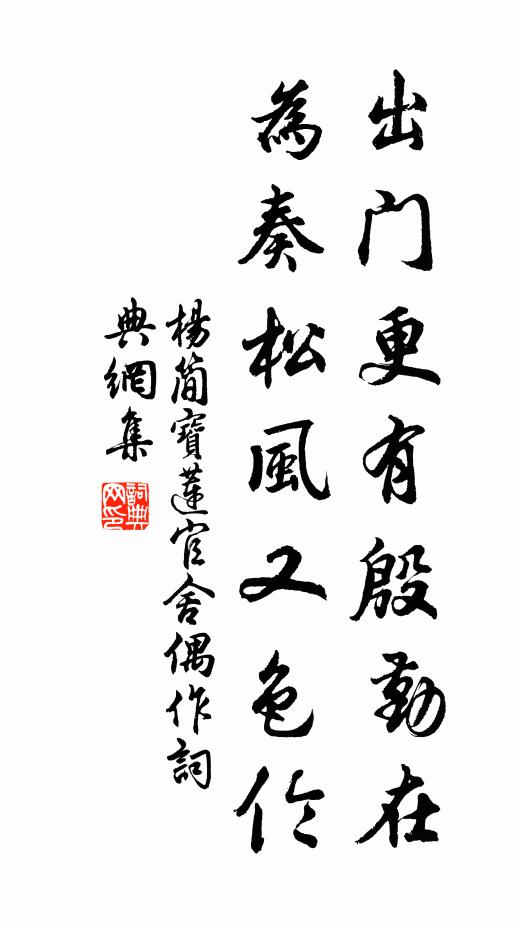 出門更有殷勤在
為奏松風又色伶
楊簡寶蓮官舍偶作詞
典網集
詞典網印